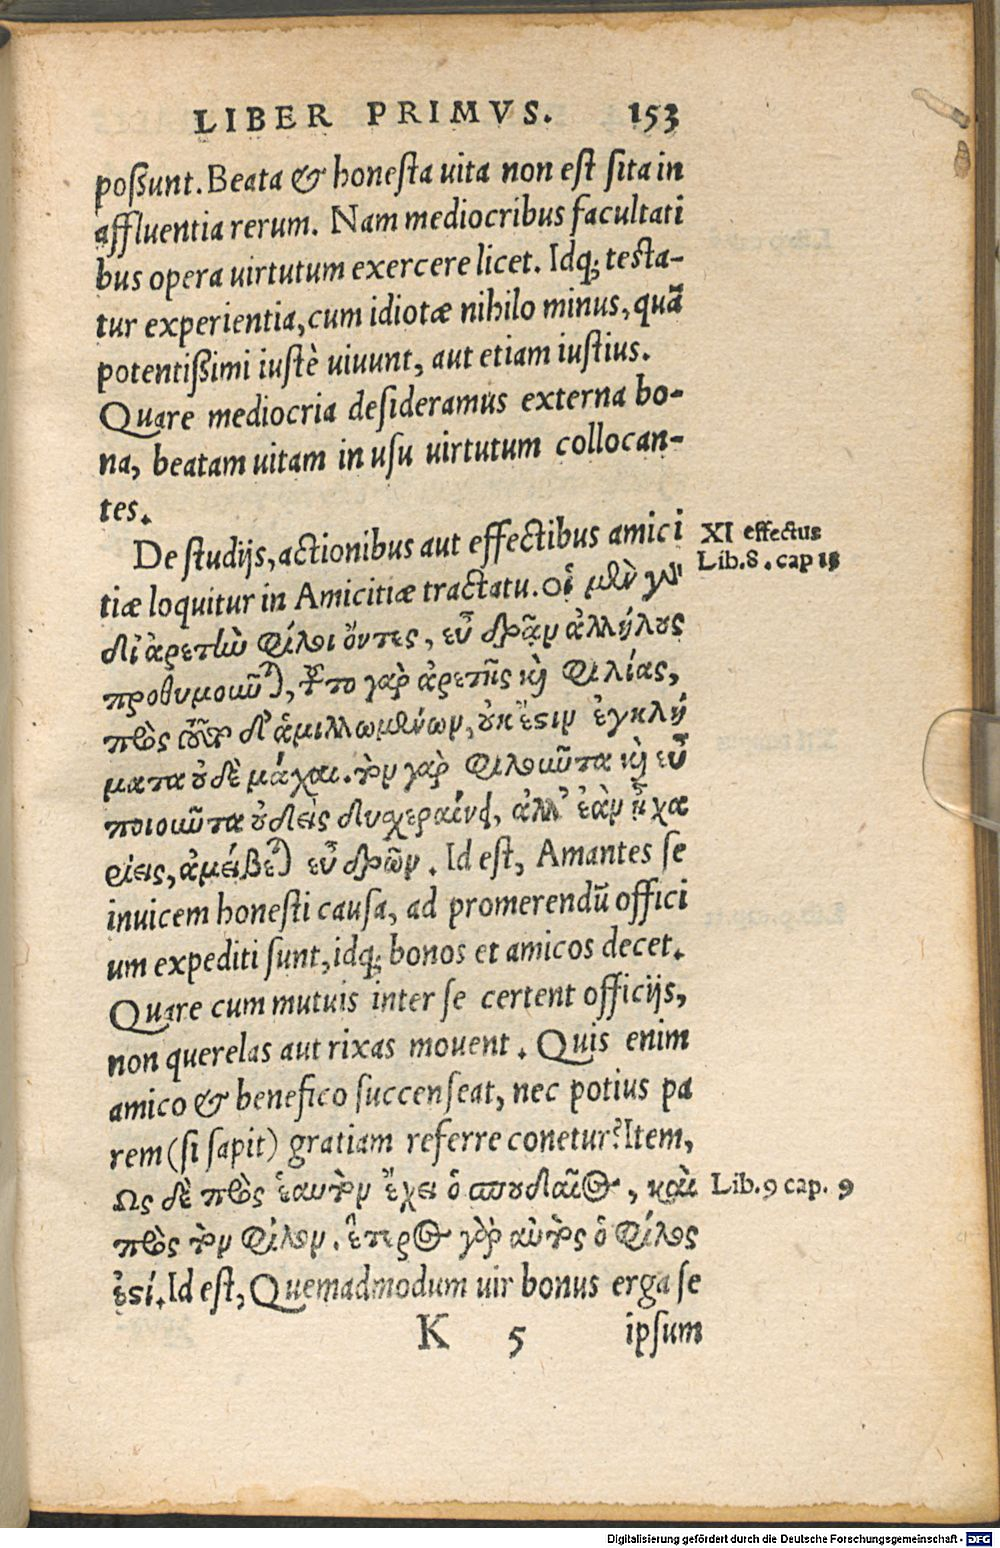 LIBER PRIMVS. 153
poſſunt. Beata & honeſta uita non eſt ſita in
affluentia rerum. Nam mediocribus facultati
bus opera uirtutum exercere licet. Idq; teſta-
tur experientia, cum idiotæ nihilo minus, quã
potentiſſimi iuſtè uiuunt, aut etiam iuſtius.
Quare mediocria deſideramus externa bo-
na, beatam uitam in uſu uirtutum collocan-
tes.
De ſtudijs, actionibus aut effectibus amici
tiæ loquitur in Amicitiæ tractatu. οἱ μὲν γὰρ
δι’ ἀρετὴν φίλοι ὄντες, εὖ δρᾷν ἀλλήλους
προθυμοῦνται, τοῦτο γὰρ ἀρετῆς καὶ φιλίας,
πρὸς τοῦτο δ’ ἁμιλλωμένων, οὐκ ἔστιν ἐγκλή
ματα οὐδὲ μάχαι. τὸν γὰρ φιλοῦντα καὶ εὖ
ποιοῦντα οὐδεὶς δυχεραίνει, ἀλλ’ ἐὰν ᾖ χα
ρίεις, ἀμείβεται εὖ δρῶν. Id eſt, Amantes ſe
inuicem honeſti cauſa, ad promerendũ offici
um expediti ſunt, idq; bonos et amicos decet.
Quare cum mutuis inter ſe certent officijs,
non querelas aut rixas mouent. Quis enim
amico & benefico ſuccenſeat, nec potius pa
rem (ſi ſapit) gratiam referre conetur? Item,
Ως δὲ πρὸς ἑαυτὸν ἔχει ὁ σπουδαῖος, καὶ
πρὸς τὸν φίλον. ἕτερος γὰρ αὐτὸς ὁ φίλος
ἐστί. Id eſt, Quemadmodum uir bonus erga ſe
K 5 ipſum
XI effectus
Lib. 8. cap 13
Lib. 9 cap. 9
Digitalisierung gefördert durch die Deutsche Forschungsgemeinschaft - DFG